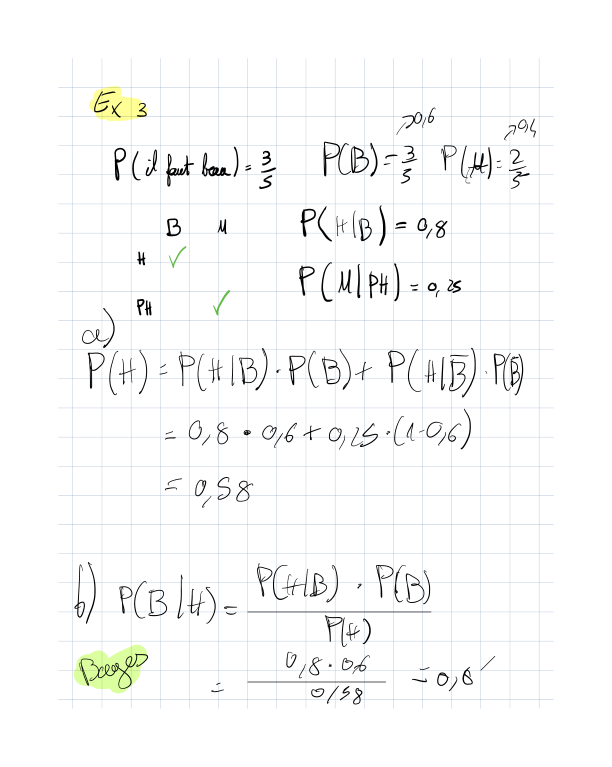 Ex 3
P(il faut beau) = 3/5 P(B) = 3/5 ↗0,6 P(M) = 2/5 ↗0,4
B M P(H|B) = 0,8
H ✓
P(M|PH) = 0,25
PH ✓
a)
P(H) = P(H|B) · P(B) + P(H|B̄) · P(B̄)
= 0,8 · 0,6 + 0,25 · (1-0,6)
= 0,58
b) P(B|H) = P(H|B) · P(B) / P(H)
Bayes = 0,8 · 0,6 / 0,58 = 0,8